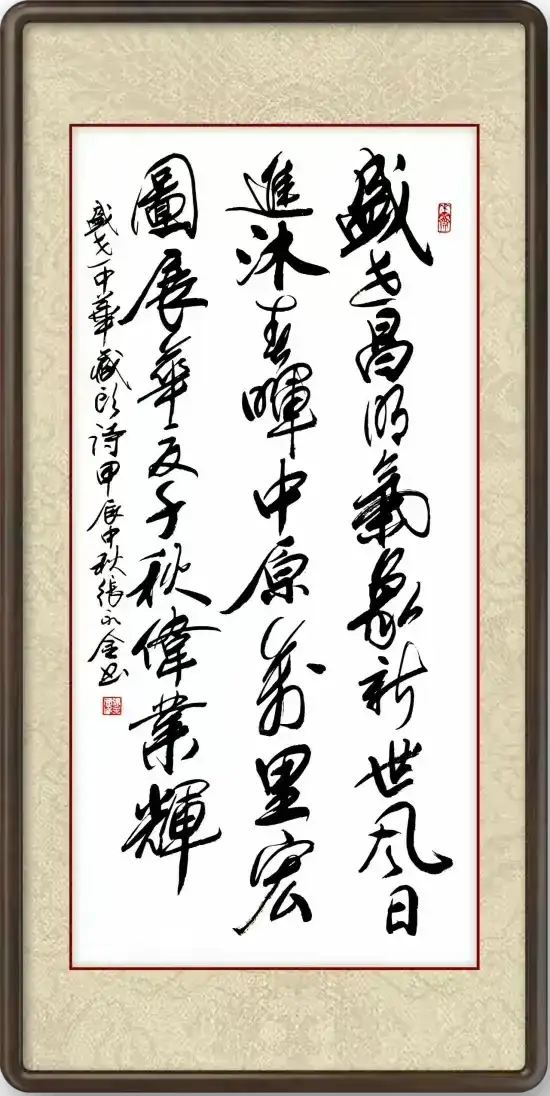 盛世昌明氣象新世風日
進沐春暉中原萬里宏
圖展華夏千秋偉業輝
盛世中華藏頭詩甲辰中秋張永金書